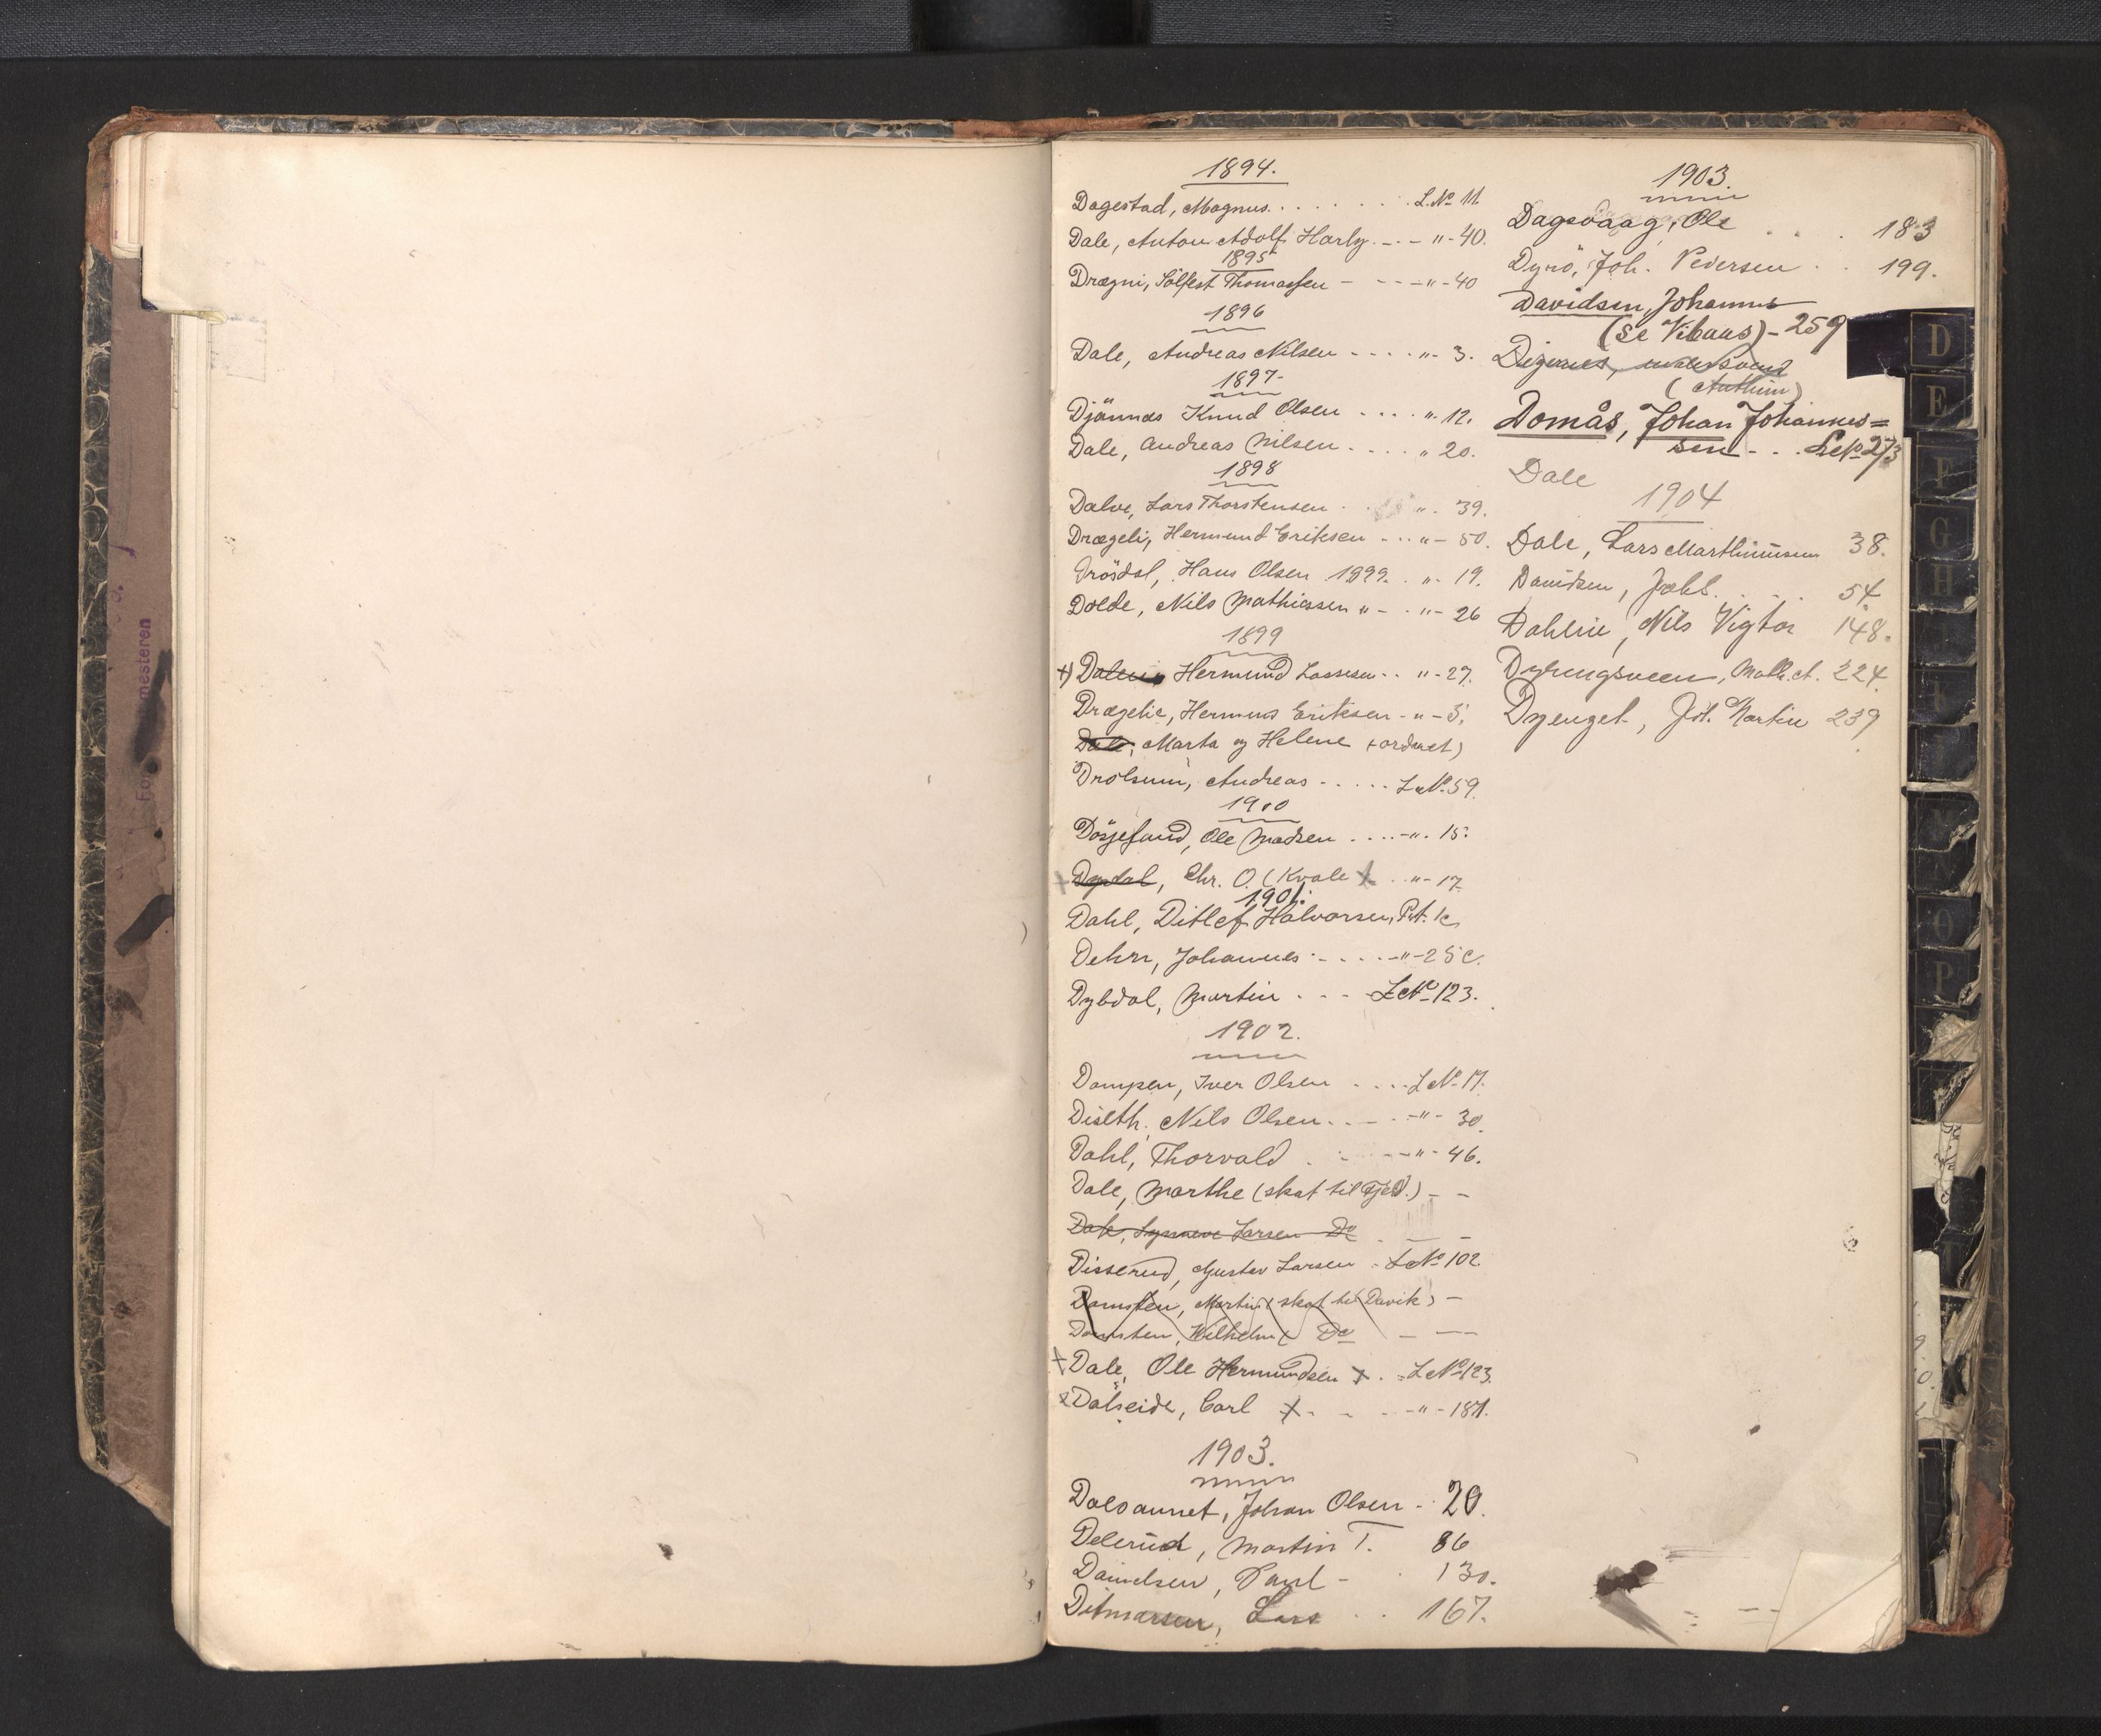 1894.
Dagestad, Magnus. . . . . . . . L.No 11.
Dale, Anton Adolf Harly. - . - " - 40.
1895
Drægni, Sölfest Thomassen - - - - " - 40
1896
Dale, Andreas Nilsen - - - - " - 3.
1897-
Djönnes Knud Olsen - - - - " 12.
Dale, Andreas Nilsen. . . . . " 20.
1898
Dalve, Lars Thorstensen . . ". 39.
Drægeli, Hermund Eriksen - . . " - 50.
Hans Olsen 1899. . ". 19.
Dolde, Nils Mathiassen " - . " - 26
1899
+) Hermund Lassesen . . " - 27.
Drægelie, Eriksen - " -
Dale, Marta og Helene (ordnet)
Drolsum, Andreas - . . . . LNo 59.
1900
Ole Madsen . . . . - ". 15.
Chr. O. (Kvale . . " - 17
1901.
Dahl, Ditlef Halvorsen,
Johannes . - . . . - " - 25
Dybdal, Martin . - - LNo 123.
1902.
Dampen, Iver Olsen . . . . LNo 17.
Diseth, Nils Olsen. . - . - " - 30.
Dahl, Thorvald . - . . - " - 46.
Dale, Marthe (skat til Fjeld.) - -
Dale, Synneve Larsen Do . - -
Disserud, Gustav Larsen - LNo 102.
Domsten, Martin (skat til Davik) -
Domsten, Wilhelm ( Do - -
+ Dale, Ole Hermundsen + . LNo 123.
Dalseide, Carl + - - . - " - 181.
1903.
Dalsaunet, Johan Olsen - . 20.
Delerud, Martin T. 86
Danielsen, Paul - . 130.
Ditmarsen, Lars . . 167.
1903.
Dagsvaag, Ole . . . 183
Dyrö, Joh. Pedersen . . 199.
Davidsen, Johannes
(se - 259
Digernes,
(Anthun)
Domås, Johan Johannes=
sen - . . LNo 273
Dale
1904
Dale, Lars Marthinusen 38.
Davidsen, . . . 54
Dahlin, Nils Vigtor 148.
Math. 224.
Dyenget, Martin 239
D
E
F
G
H
O
P